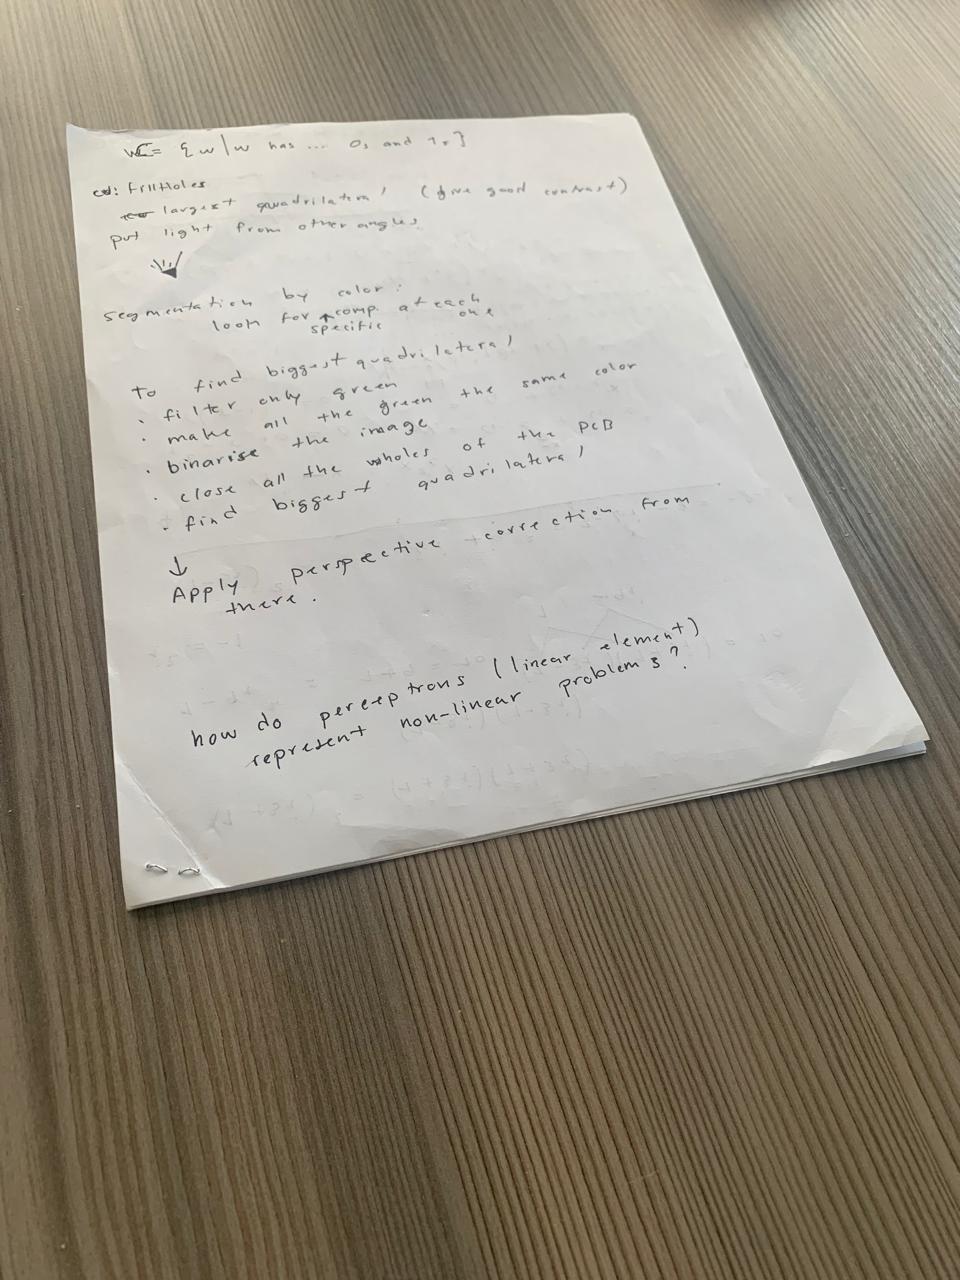 = {w | w has ... 0s and 1s}
cd: FillHoles
largest quadrilateral (give good contrast)
put light from other angles
segmentation by color:
look for comp. at each one
specific
To find biggest quadrilateral
· filter only green
· make all the green the same color
· binarise the image
· close all the wholes of the PCB
· find biggest quadrilateral
↓
Apply perspective correction from
there.
how do perceptrons (linear element)
represent non-linear problems?